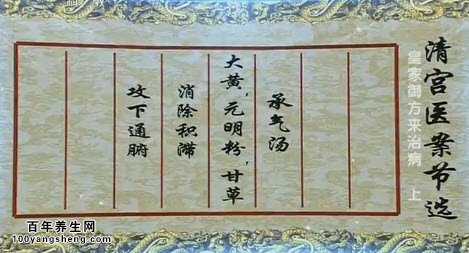 清宫医案节选
皇家御方来治病 上
承气汤
大黄,元明粉,甘草
消除积滞
攻下通腑
百年养生网
100yangsheng.com